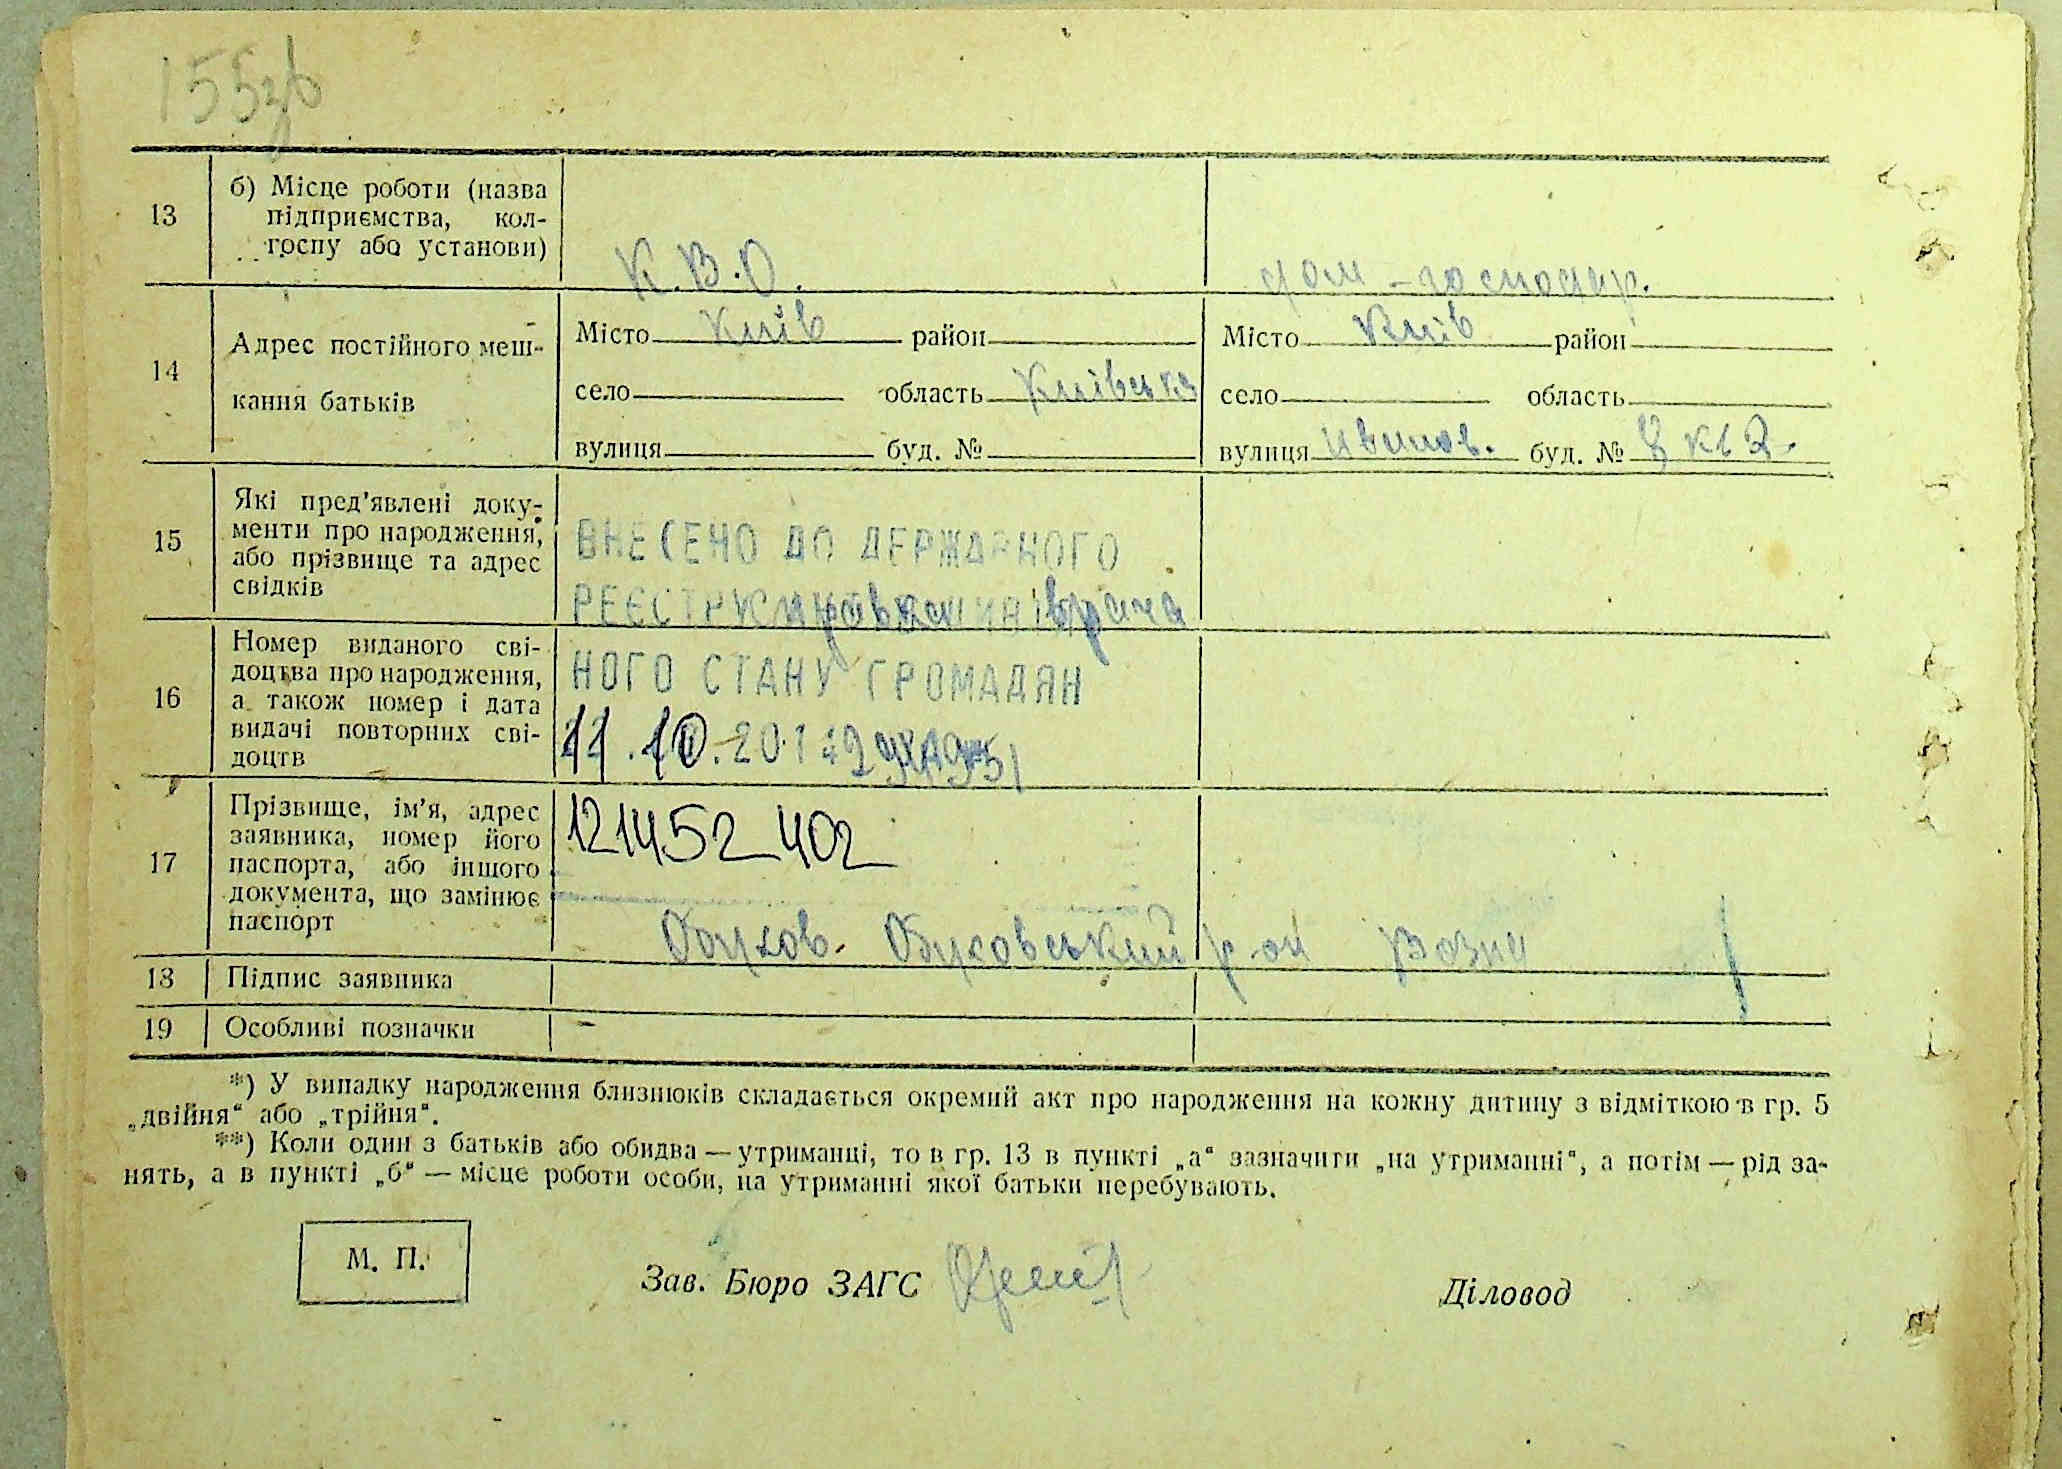 155зв
13
б) Місце роботи (назва
підприємства, кол-
госпу або установи)
К.В.О.
дом-господар.
14
Адрес постійного меш-
кання батьків
Місто Київ район
село область Київська
вулиця буд. №
Місто Київ район
село область
вулиця буд. № кв 2.
15
Які пред'явлені доку-
менти про народження,
або прізвище та адрес
свідків
ВНЕСЕНО ДО ДЕРЖАВНОГО
РЕЄСТРУ
16
Номер виданого сві-
доцтва про народження,
а також номер і дата
видачі повторних сві-
доцтв
НОГО СТАНУ ГРОМАДЯН
11.10.201
17
Прізвище, ім'я, адрес
заявника, номер його
паспорта, або іншого
документа, що замінює
паспорт
121452402
Обуховський р-он
18
Підпис заявника
19
Особливі позначки
*) У випадку народження близнюків складається окремий акт про народження на кожну дитину з відміткою в гр. 5
„двійня“ або „трійня“.
**) Коли один з батьків або обидва — утриманці, то в гр. 13 в пункті „а“ зазначити „на утриманні“, а потім — рід за-
нять, а в пункті „б“ — місце роботи особи, на утриманні якої батьки перебувають.
М. П.
Зав. Бюро ЗАГС
Діловод